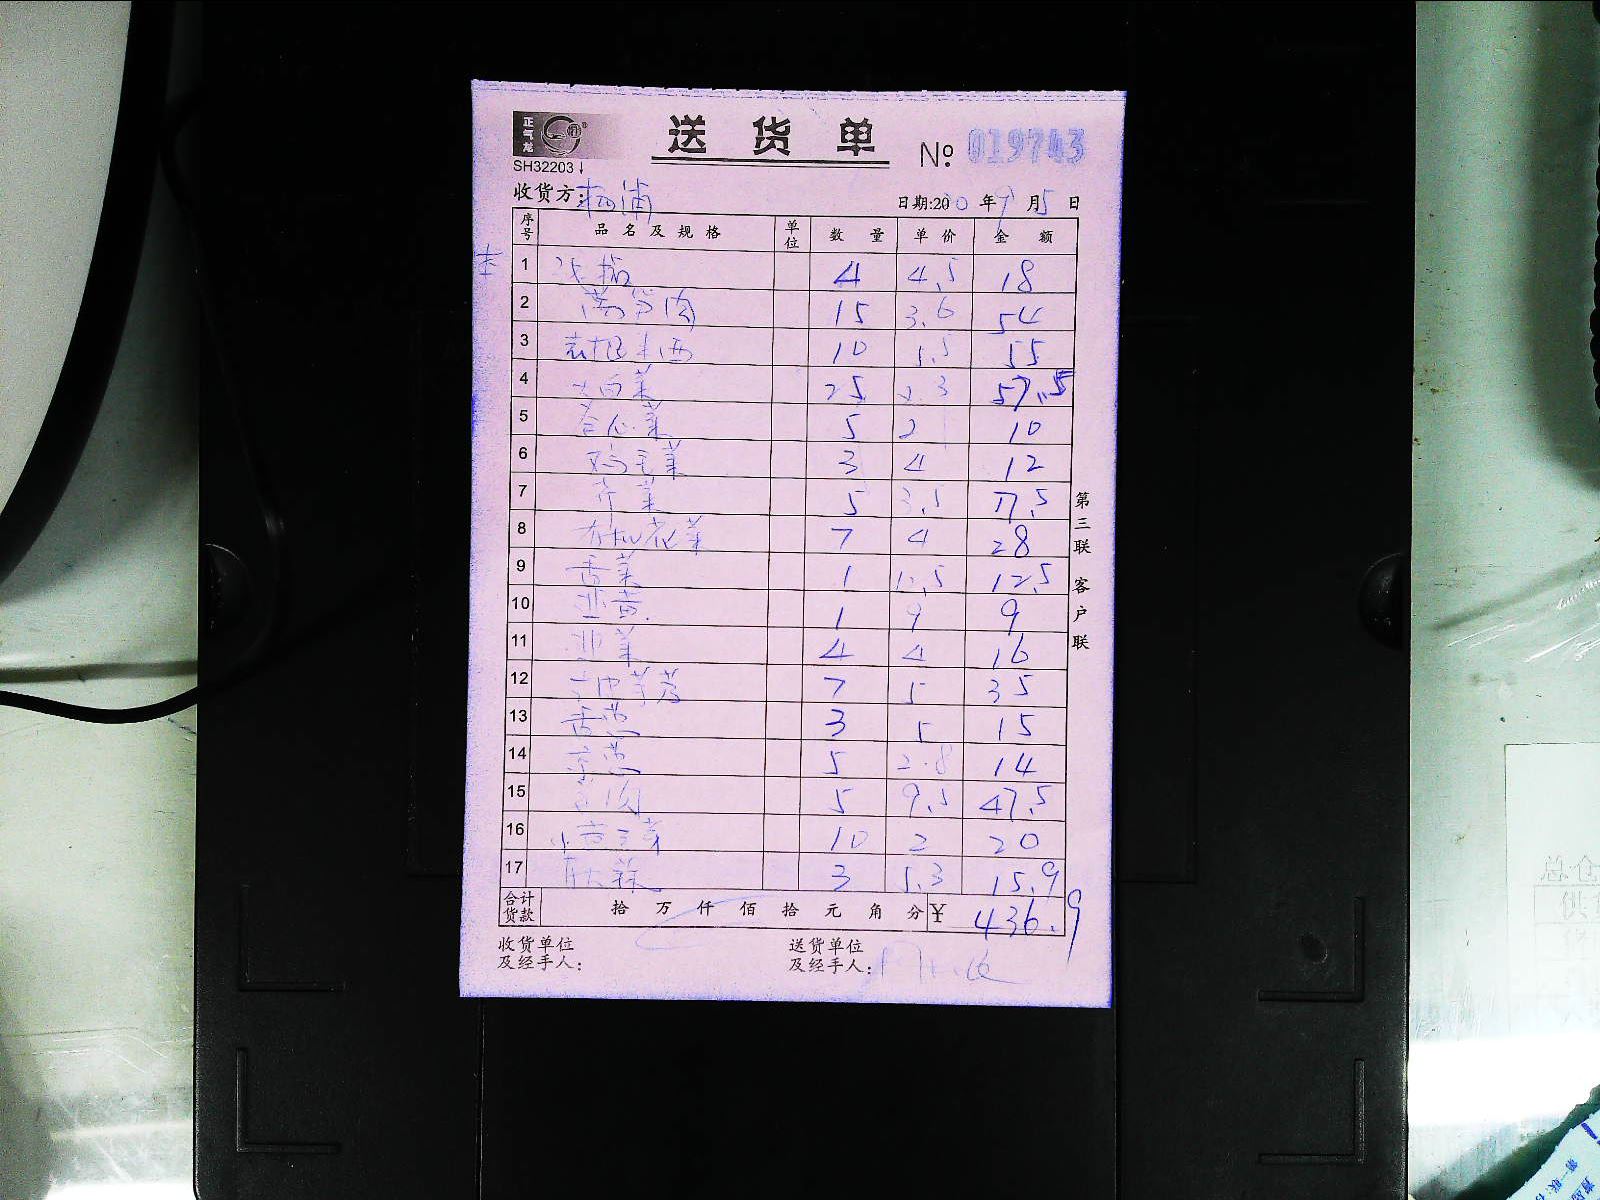 正气龙
SH32203↓
送货单
№ 019743
收货方：杨浦
日期:20 年9月5日
序号 品名及规格 单位 数量 单价 金额
1 4 4.5 18
2 莴笋肉 15 3.6 54
3 10 5.5 55
4 大白菜 25 2.3 57.5
5 卷心菜 5 2 10
6 鸡毛菜 3 4 12
7 芹菜 5 3.5 17.5
8 有机花菜 7 4 28
9 香菜 1 12.5 12.5
10 韭黄 1 9 9
11 韭菜 4 4 16
12 7 5 35
13 香葱 3 5 15
14 京葱 5 2.8 14
15 5 9.5 47.5
16 小 10 2 20
17 3 5.3 15.9
合计货款 拾 万 仟 佰 拾 元 角 分 ￥ 436.9
收货单位及经手人：
送货单位及经手人：
第三联 客户联